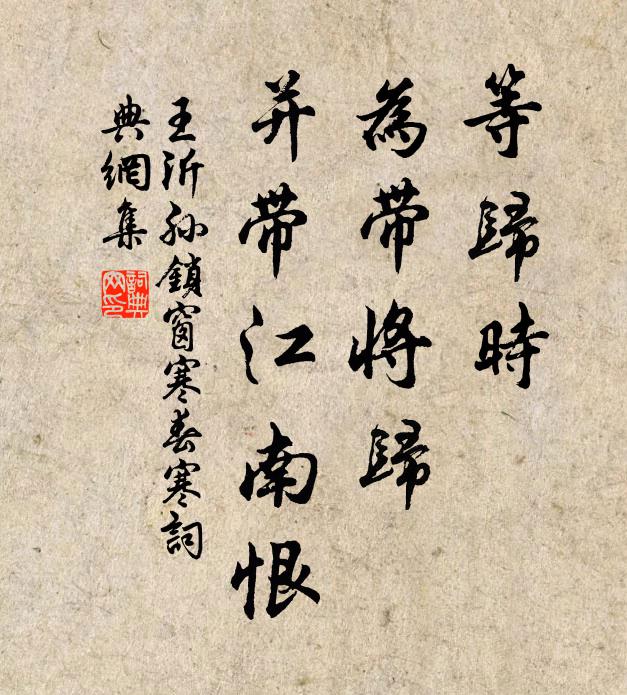 等歸時
為帶將歸
并帶江南恨
王沂孫鎖窗寒春寒詞
典網集
詞典網印